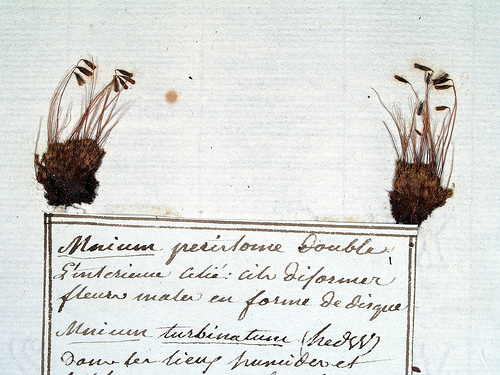 Mnium peristome Double
L'interieur cilié: cils Diformer
fleurs males en forme de disque
Mnium turbinatum (hedw)
Dans les lieux humides et